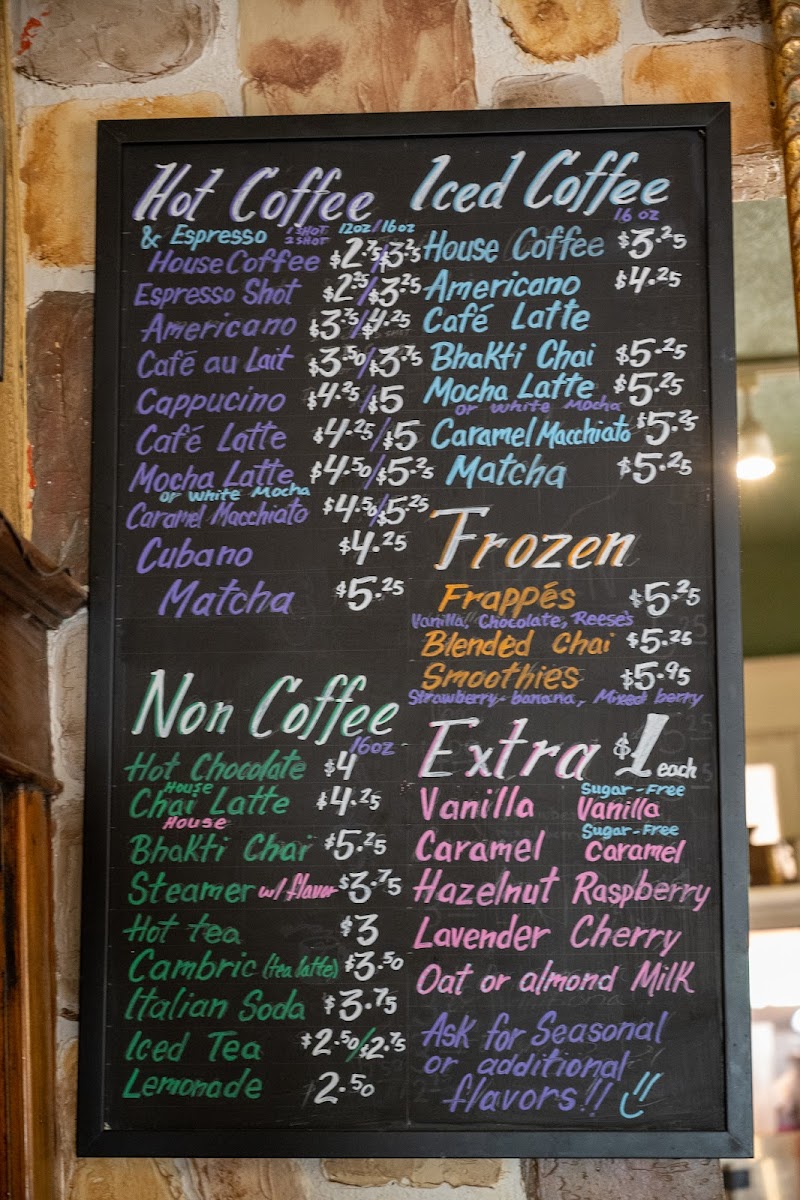 Hot Coffee
& Espresso 1 SHOT 2 SHOT 12oz/16oz
House Coffee $2.75/$3.25
Espresso Shot $2.25/$3.25
Americano $3.75/$4.25
Café au Lait $3.50/$3.75
Cappucino $4.25/$5
Café Latte $4.25/$5
Mocha Latte $4.50/$5.25
or White Mocha
Caramel Macchiato $4.50/$5.25
Cubano $4.25
Matcha $5.25
Non Coffee
16oz
Hot Chocolate $4
House
Chai Latte $4.25
House
Bhakti Chai $5.25
Steamer w/ flavor $3.75
Hot tea $3
Cambric (tea latte) $3.50
Italian Soda $3.75
Iced Tea $2.50/$2.75
Lemonade 2.50
Iced Coffee
16 oz
House Coffee $3.25
Americano $4.25
Café Latte
Bhakti Chai $5.25
Mocha Latte $5.25
or White Mocha
Caramel Macchiato $5.25
Matcha $5.25
Frozen
Frappés $5.25
Vanilla, Chocolate, Reese's
Blended Chai $5.25
Smoothies $5.95
Strawberry-banana, Mixed berry
Extra $1 each
Sugar-Free
Vanilla Vanilla
Sugar-Free
Caramel Caramel
Hazelnut Raspberry
Lavender Cherry
Oat or almond Milk
Ask for Seasonal
or additional
flavors!!